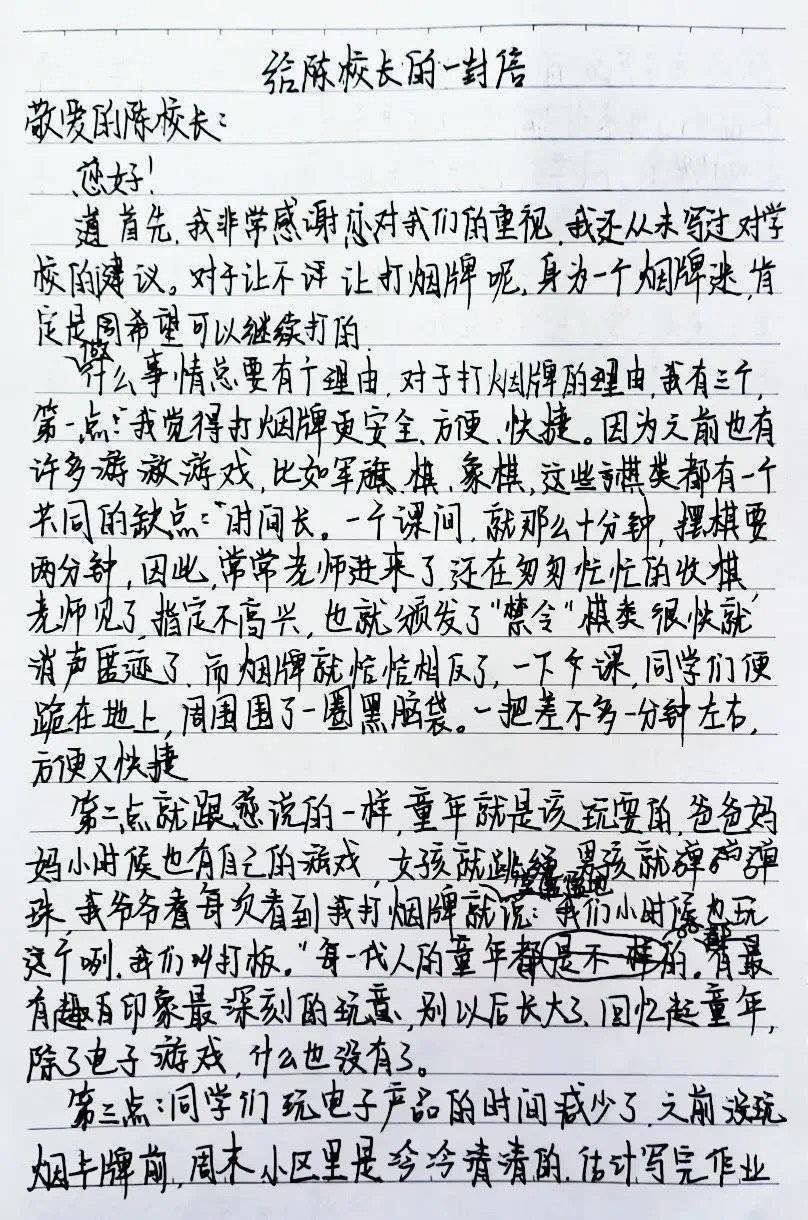 给陈校长的一封信
敬爱的陈校长：
您好！
首先，我非常感谢您对我们的重视，我还从未写过对学
校的建议。对于让不让打烟牌呢，身为一个烟牌迷，肯
定是希望可以继续打的.
什么事情总要有个理由，对于打烟牌的理由，我有三个，
第一点：我觉得打烟牌更安全、方便、快捷。因为之前也有
许多游戏，比如军旗、棋、象棋，这些棋类都有一个
共同的缺点：时间长。一个课间，就那么十分钟，摆棋要
两分钟，因此，常常老师进来了，还在匆匆忙忙的收棋，
老师见了，指定不高兴，也就颁发了“禁令”棋类很快就
消声匿迹了，而烟牌就恰恰相反了，一下课，同学们便
跪在地上，周围围了一圈黑脑袋。一把差不多一分钟左右，
方便又快捷
第二点就跟您说的一样，童年就是该玩耍的，爸爸妈
妈小时候也有自己的游戏，女孩就跳绳，男孩就弹弹
珠，我爷爷每次看到我打烟牌就说：我们小时候也玩
这个咧，我们叫打板。”每一代人的童年都是不一样的。有最
有趣有印象最深刻的玩意，别以后长大了，回忆起童年，
除了电子游戏，什么也没有了。
第三点：同学们玩电子产品的时间减少了，之前没玩
烟卡牌前，周末，小区里是冷冷清清的，估计写完作业